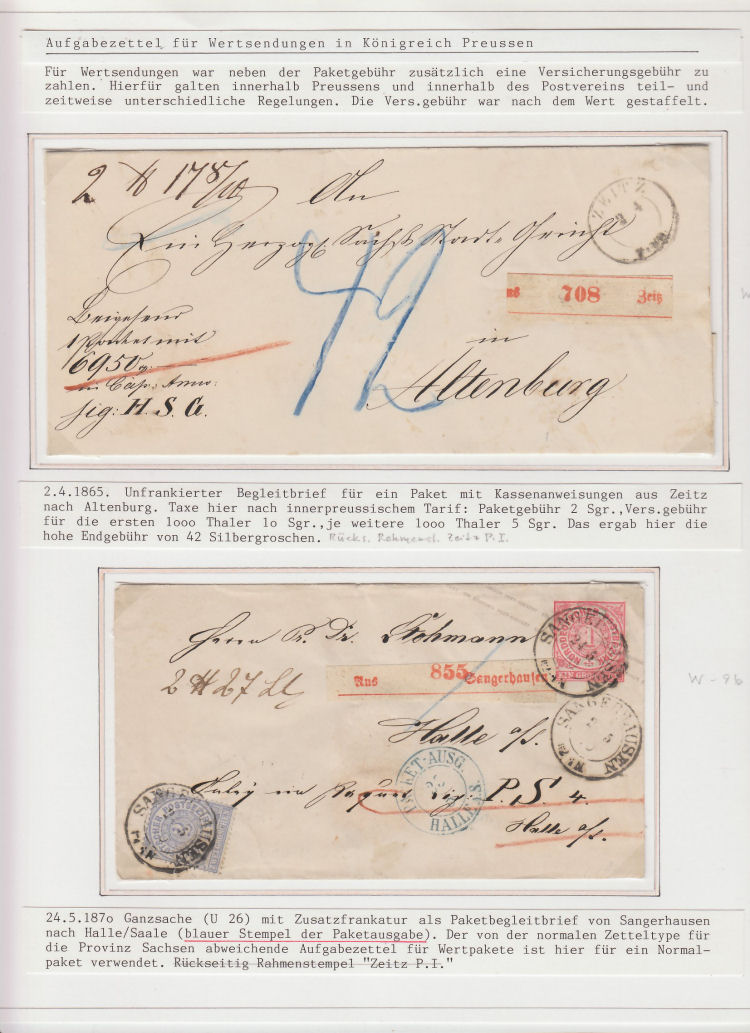 Aufgabezettel für Wertsendungen in Königreich Preussen
Für Wertsendungen war neben der Paketgebühr zusätzlich eine Versicherungsgebühr zu
zahlen. Hierfür galten innerhalb Preussens und innerhalb des Postvereins teil- und
zeitweise unterschiedliche Regelungen. Die Vers.gebühr war nach dem Wert gestaffelt.
An
ZEITZ
2 4
Aus 708 Zeitz
42
Beigehend
6950
in
Altenburg
sig: H. S. G.
2.4.1865. Unfrankierter Begleitbrief für ein Paket mit Kassenanweisungen aus Zeitz
nach Altenburg. Taxe hier nach innerpreussischem Tarif: Paketgebühr 2 Sgr.,Vers.gebühr
für die ersten 1ooo Thaler 1o Sgr.,je weitere 1ooo Thaler 5 Sgr. Das ergab hier die
hohe Endgebühr von 42 Silbergroschen. Rücks. Rahmenst. Zeitz P.I.
SANGERHAUSEN
Aus 855 Sangerhausen
W-96
Halle a/s.
SANGERHAUSEN
PACKET-AUSG.
HALLE
P. S. 4.
Halle a/s.
SANGERHAUSEN
24.5.187o Ganzsache (U 26) mit Zusatzfrankatur als Paketbegleitbrief von Sangerhausen
nach Halle/Saale (blauer Stempel der Paketausgabe). Der von der normalen Zetteltype für
die Provinz Sachsen abweichende Aufgabezettel für Wertpakete ist hier für ein Normal-
paket verwendet. Rückseitig Rahmenstempel "Zeitz P.I."